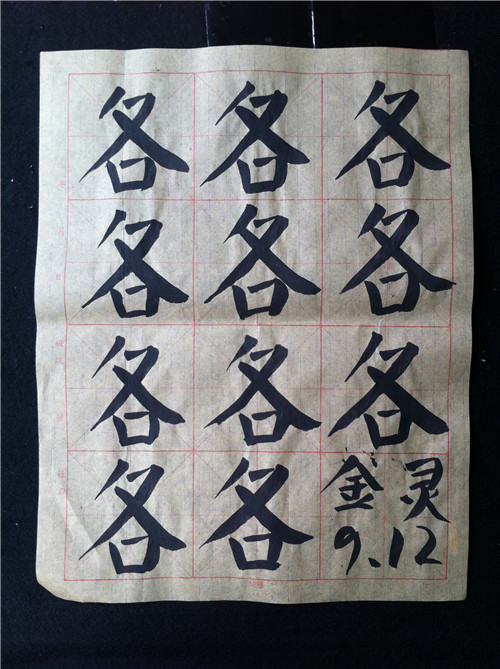 各各各
各各各
各各各
各各金灵
9.12